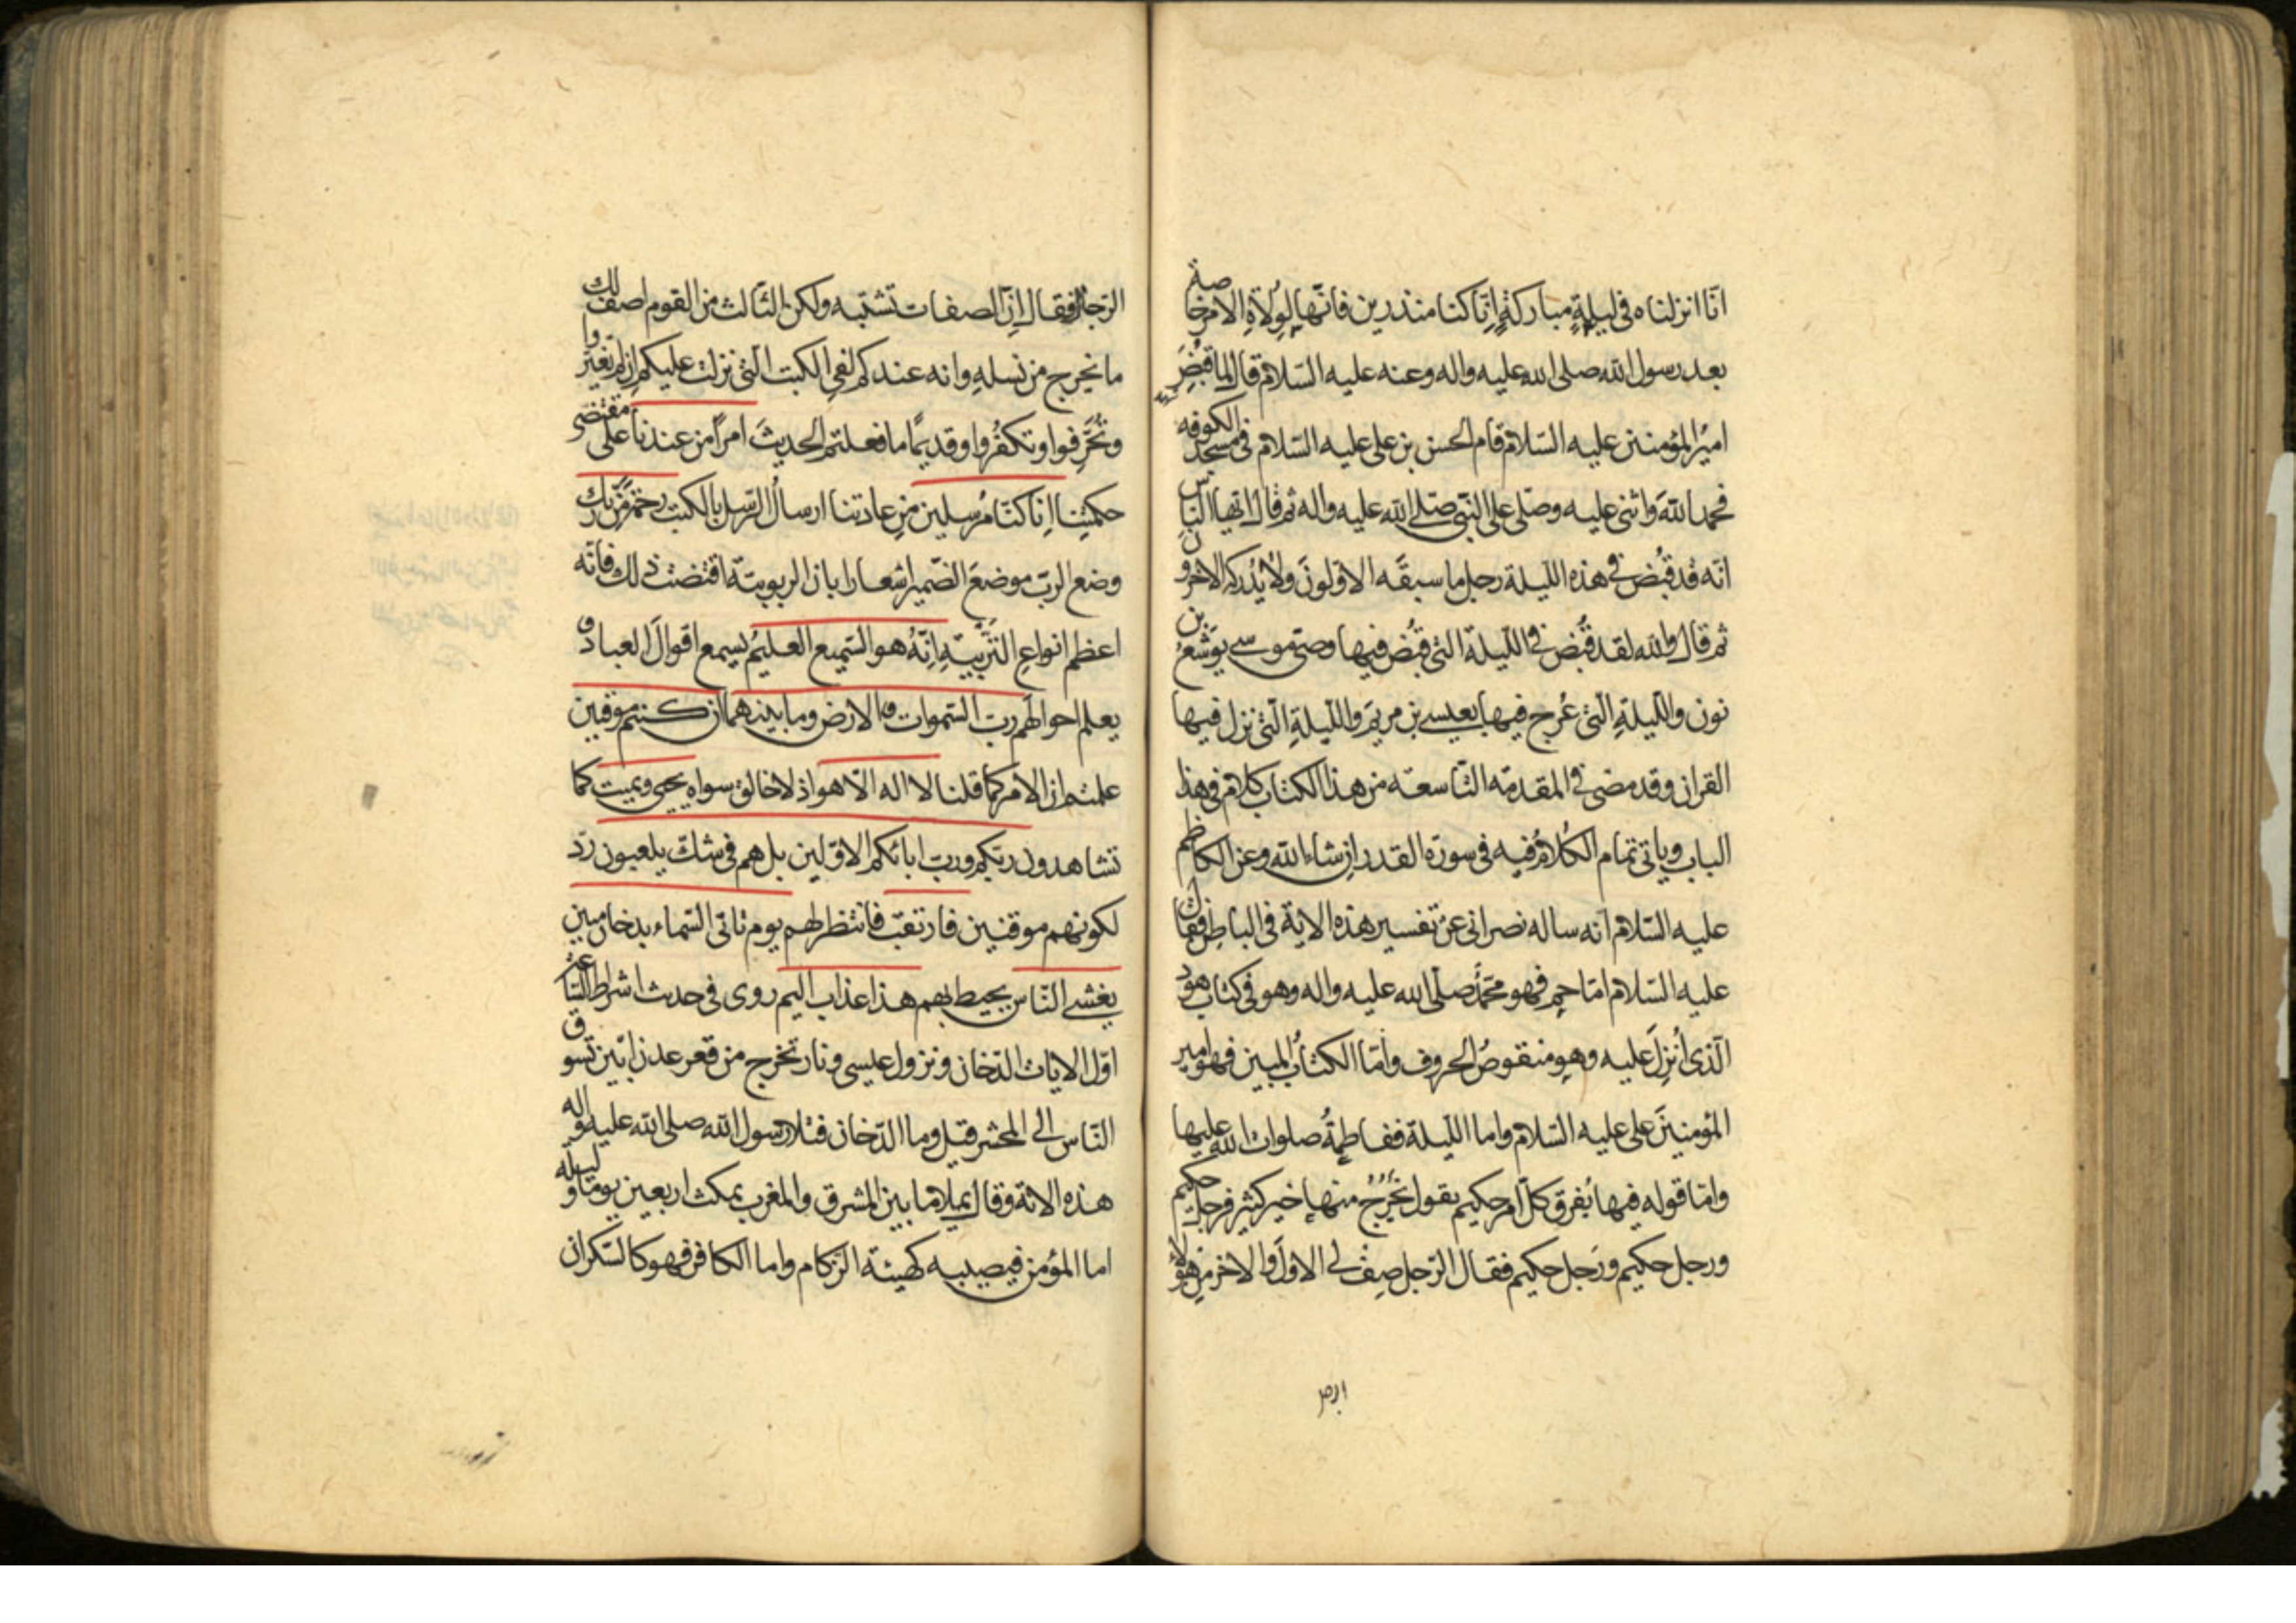 انّا انزلناه فى ليلةٍ مباركةٍ إنّا كنا منذرين فانّها لِوُلاةِ الامر خاصة
بعد رسول الله صلى الله عليه واله وعنه عليه السّلام قال لما قبُضِرَ
اميرُ المؤمنين عليه السّلام قام الحسن بن على عليه السّلام فى مسجد الكوفه
فحمد اللهَ واثنى عليه وصلّى على النّبى صلّى الله عليه واله ثم قال ايّها النّاس
انّه قد قبُض فى هذه اللّيلة رجل ما سبقَه الاوّلونَ ولا يُدركه الاخرون
ثم قال والله لقد قُبض فى اللّيلة التى قبُض فيها وصىّ موسى يوشعُ بن
نون واللّيلةِ الّتى عُرج فيها بعيسى بن مريمَ واللّيلةِ الّتى نزل فيها
القران وقد مضى فى المقدمّه التّاسعة من هذا الكتاب كلام فى هذا
الباب وياتى تمام الكلام فيه فى سورة القدر ان شاء الله وعن الكاظم
عليه السّلام انه ساله نصرانى عن تفسير هذه الاية فى الباطن فقال
عليه السّلام امّا حم فهو محمّدٌ صلّى الله عليه واله وهو فى كتاب هود
الّذى أُنزِلَ عليه وهو منقوصُ الحروف وامّا الكتابُ المبين فهو امير
المؤمنينَ على عليه السّلام واما اللّيلة ففاطمةُ صلوات الله عليها
وامّا قوله فيها يُفرق كلّ امر حكيم يقول يَخْرُجُ منها خير كثير فرجل حكيم
ورجل حكيم ورَجل حكيم فقال الرّجل صِف لى الاوّل والاخر من هؤلاء
الرّجال فقال إنّ الصفات تشتبه ولكن الثّالث من القوم اصف لك
ما يخرج من نسلهِ وانه عندكم لفى الكتب الّتى نزلت عليكم إن لم تغيّروا
وتُحَرِّفوا وتكفُروا وقديمًا ما فعلتم الحديثَ امراً من عندنا على مقتضى
حكمتِنا اِنّا كنّا مُرسِلين من عادتنا ارسالُ الرّسل بالكتب رحمةً من ربّك
وضع الربّ موضعَ الضّمير اشعارا بان الربوبيّة اقتضت ذلك فانّه
اعظم انواعِ التّربيّةِ اِنّهُ هو السّميع العليمُ يسمع اقوالَ العباد و
يعلم احوالهم ربّ السّموات والارض وما بينهما ان كنتم موقنين
علمتم ان الامر كما قلنا لا اله الّا هو اذ لا خالق سواه يحيى ويميت كما
تشاهدون ربّكم وربّ ابائكم الاوّلين بل هم فى شكّ يلعبون ردّ
لكونهم موقنين فارتقبْ فانتظر لهم يوم تاتى السّماء بدخان مبين
يغشى النّاس يحيط بهم هذا عذاب اليم روى فى حدث اشراط السّاعة
اوّل الايات الدّخان ونزول عيسى ونار تخرج من قعر عدن ابين تسوق
النّاس الى المحشر قيل وما الدّخان فتلا رسول الله صلى الله عليه واله
هذه الاية وقال يملا ما بين المشرق والمغرب يمكث اربعين يومًا وليلة
اما المؤمن فيصيبه كهيئة الزّكام واما الكافر فهو كالسّكران